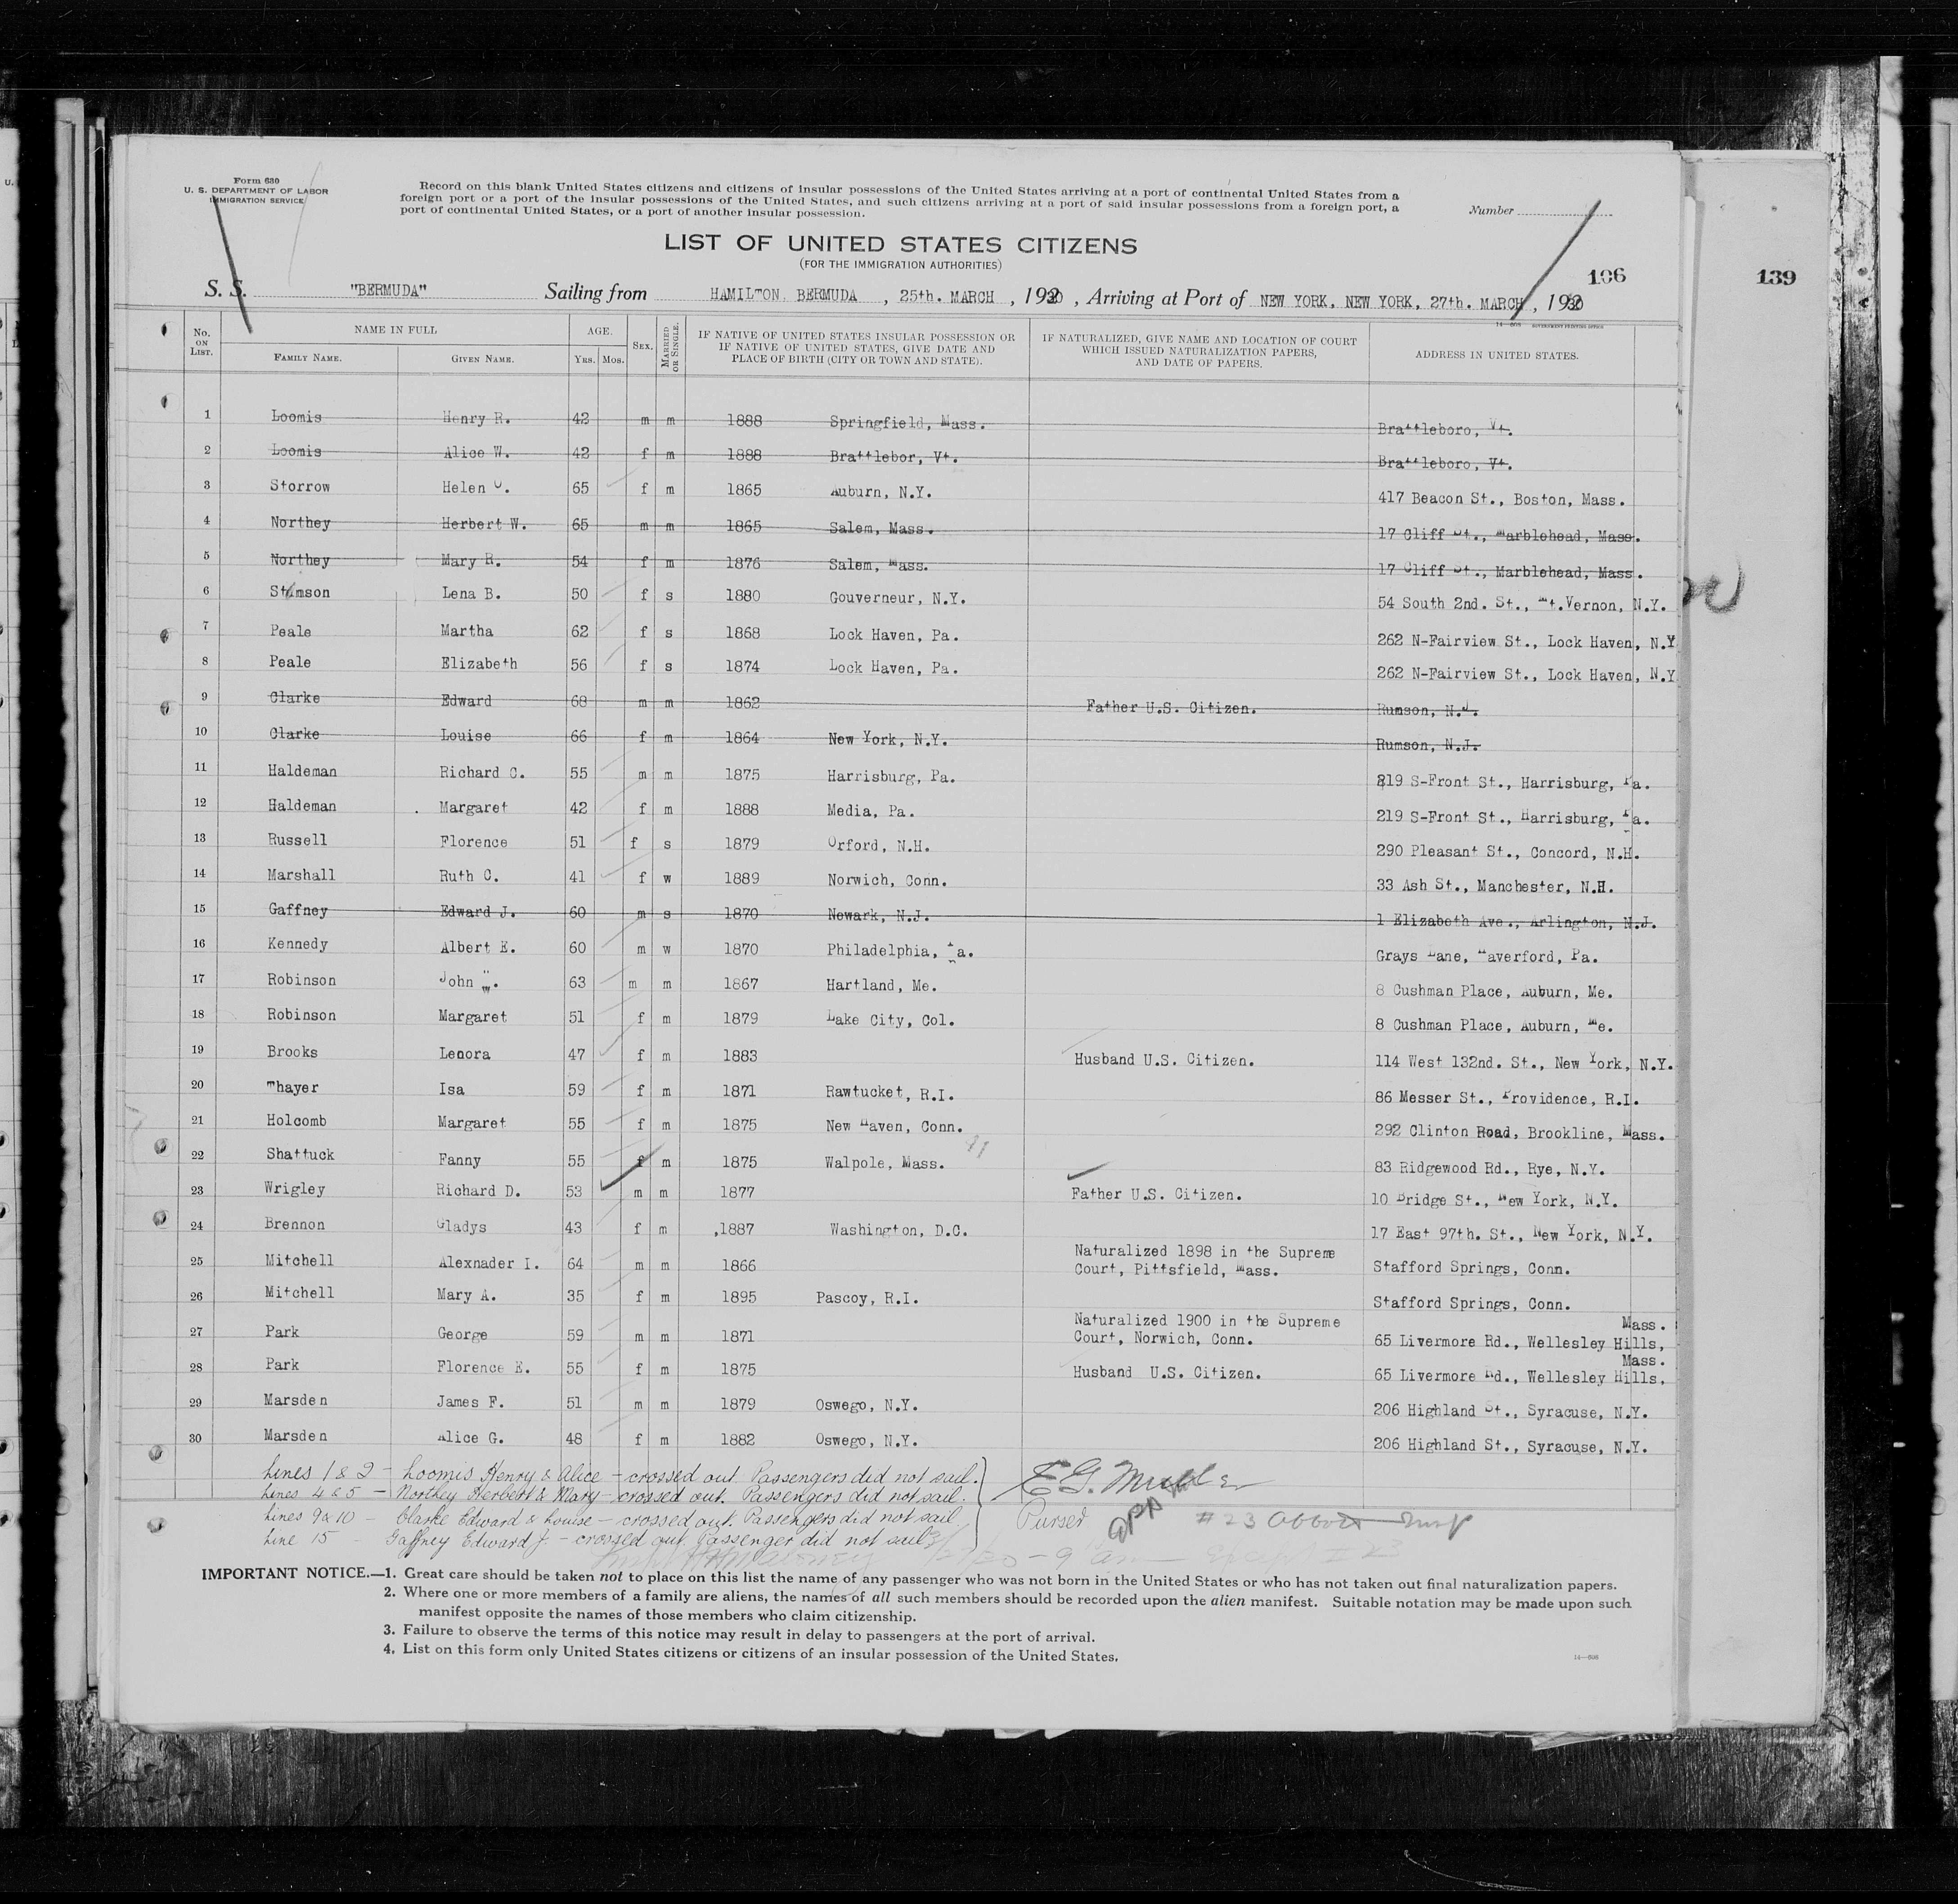 Form 630
U. S. DEPARTMENT OF LABOR
IMMIGRATION SERVICE
Record on this blank United States citizens and citizens of insular possessions of the United States arriving at a port of continental United States from a
foreign port or a port of the insular possessions of the United States, and such citizens arriving at a port of said insular possessions from a foreign port, a
port of continental United States, or a port of another insular possession.
Number
LIST OF UNITED STATES CITIZENS
(FOR THE IMMIGRATION AUTHORITIES)
106
139
S. S. "BERMUDA" Sailing from HAMILTON BERMUDA , 25th. MARCH , 1930 , Arriving at Port of NEW YORK, NEW YORK, 27th. MARCH , 1930
14—608 GOVERNMENT PRINTING OFFICE
No. ON LIST. NAME IN FULL FAMILY NAME. GIVEN NAME. AGE. Yrs. Mos. SEX. MARRIED OR SINGLE. IF NATIVE OF UNITED STATES INSULAR POSSESSION OR IF NATIVE OF UNITED STATES, GIVE DATE AND PLACE OF BIRTH (CITY OR TOWN AND STATE). IF NATURALIZED, GIVE NAME AND LOCATION OF COURT WHICH ISSUED NATURALIZATION PAPERS, AND DATE OF PAPERS. ADDRESS IN UNITED STATES.
1 Loomis Henry R. 42 m m 1888 Springfield, Mass. Brattleboro, Vt.
2 Loomis Alice W. 42 f m 1888 Brattlebor, Vt. Brattleboro, Vt.
3 Storrow Helen O. 65 f m 1865 Auburn, N.Y. 417 Beacon St., Boston, Mass.
4 Northey Herbert W. 65 m m 1865 Salem, Mass. 17 Cliff St., Marblehead, Mass.
5 Northey Mary R. 54 f m 1876 Salem, Mass. 17 Cliff St., Marblehead, Mass.
6 Stimson Lena B. 50 f s 1880 Gouverneur, N.Y. 54 South 2nd. St., Mt.Vernon, N.Y.
7 Peale Martha 62 f s 1868 Lock Haven, Pa. 262 N-Fairview St., Lock Haven, N.Y
8 Peale Elizabeth 56 f s 1874 Lock Haven, Pa. 262 N-Fairview St., Lock Haven, N.Y
9 Clarke Edward 68 m m 1862 Father U.S. Citizen. Rumson, N.J.
10 Clarke Louise 66 f m 1864 New York, N.Y. Rumson, N.J.
11 Haldeman Richard C. 55 m m 1875 Harrisburg, Pa. 219 S-Front St., Harrisburg, Pa.
12 Haldeman Margaret 42 f m 1888 Media, Pa. 219 S-Front St., Harrisburg, Pa.
13 Russell Florence 51 f s 1879 Orford, N.H. 290 Pleasant St., Concord, N.H.
14 Marshall Ruth C. 41 f w 1889 Norwich, Conn. 33 Ash St., Manchester, N.H.
15 Gaffney Edward J. 60 m s 1870 Newark, N.J. 1 Elizabeth Ave., Arlington, N.J.
16 Kennedy Albert E. 60 m w 1870 Philadelphia, Pa. Grays Lane, Haverford, Pa.
17 Robinson John W. 63 m m 1867 Hartland, Me. 8 Cushman Place, Auburn, Me.
18 Robinson Margaret 51 f m 1879 Lake City, Col. 8 Cushman Place, Auburn, Me.
19 Brooks Lenora 47 f m 1883 Husband U.S. Citizen. 114 West 132nd. St., New York, N.Y.
20 Thayer Isa 59 f m 1871 Rawtucket, R.I. 86 Messer St., Providence, R.I.
21 Holcomb Margaret 55 f m 1875 New Haven, Conn. 292 Clinton Road, Brookline, Mass.
22 Shattuck Fanny 55 f m 1875 Walpole, Mass. 83 Ridgewood Rd., Rye, N.Y.
23 Wrigley Richard D. 53 m m 1877 Father U.S. Citizen. 10 Bridge St., New York, N.Y.
24 Brennon Gladys 43 f m ,1887 Washington, D.C. 17 East 97th. St., New York, N.Y.
25 Mitchell Alexnader I. 64 m m 1866 Naturalized 1898 in the Supreme Court, Pittsfield, Mass. Stafford Springs, Conn.
26 Mitchell Mary A. 35 f m 1895 Pascoy, R.I. Stafford Springs, Conn.
27 Park George 59 m m 1871 Naturalized 1900 in the Supreme Court, Norwich, Conn. 65 Livermore Rd., Wellesley Hills, Mass.
28 Park Florence E. 55 f m 1875 Husband U.S. Citizen. 65 Livermore Rd., Wellesley Hills, Mass.
29 Marsden James F. 51 m m 1879 Oswego, N.Y. 206 Highland St., Syracuse, N.Y.
30 Marsden Alice G. 48 f m 1882 Oswego, N.Y. 206 Highland St., Syracuse, N.Y.
Lines 1 & 2 – Loomis Henry & Alice – crossed out. Passengers did not sail.
Lines 4 & 5 – Northey Herbert & Mary – crossed out. Passengers did not sail.
Lines 9 & 10 – Clarke Edward & Louise – crossed out. Passengers did not sail
Line 15 – Gaffney Edward J. – crossed out. Passenger did not sail
Purser
# 23
IMPORTANT NOTICE.—1. Great care should be taken not to place on this list the name of any passenger who was not born in the United States or who has not taken out final naturalization papers.
2. Where one or more members of a family are aliens, the names of all such members should be recorded upon the alien manifest. Suitable notation may be made upon such
manifest opposite the names of those members who claim citizenship.
3. Failure to observe the terms of this notice may result in delay to passengers at the port of arrival.
4. List on this form only United States citizens or citizens of an insular possession of the United States.
14—608